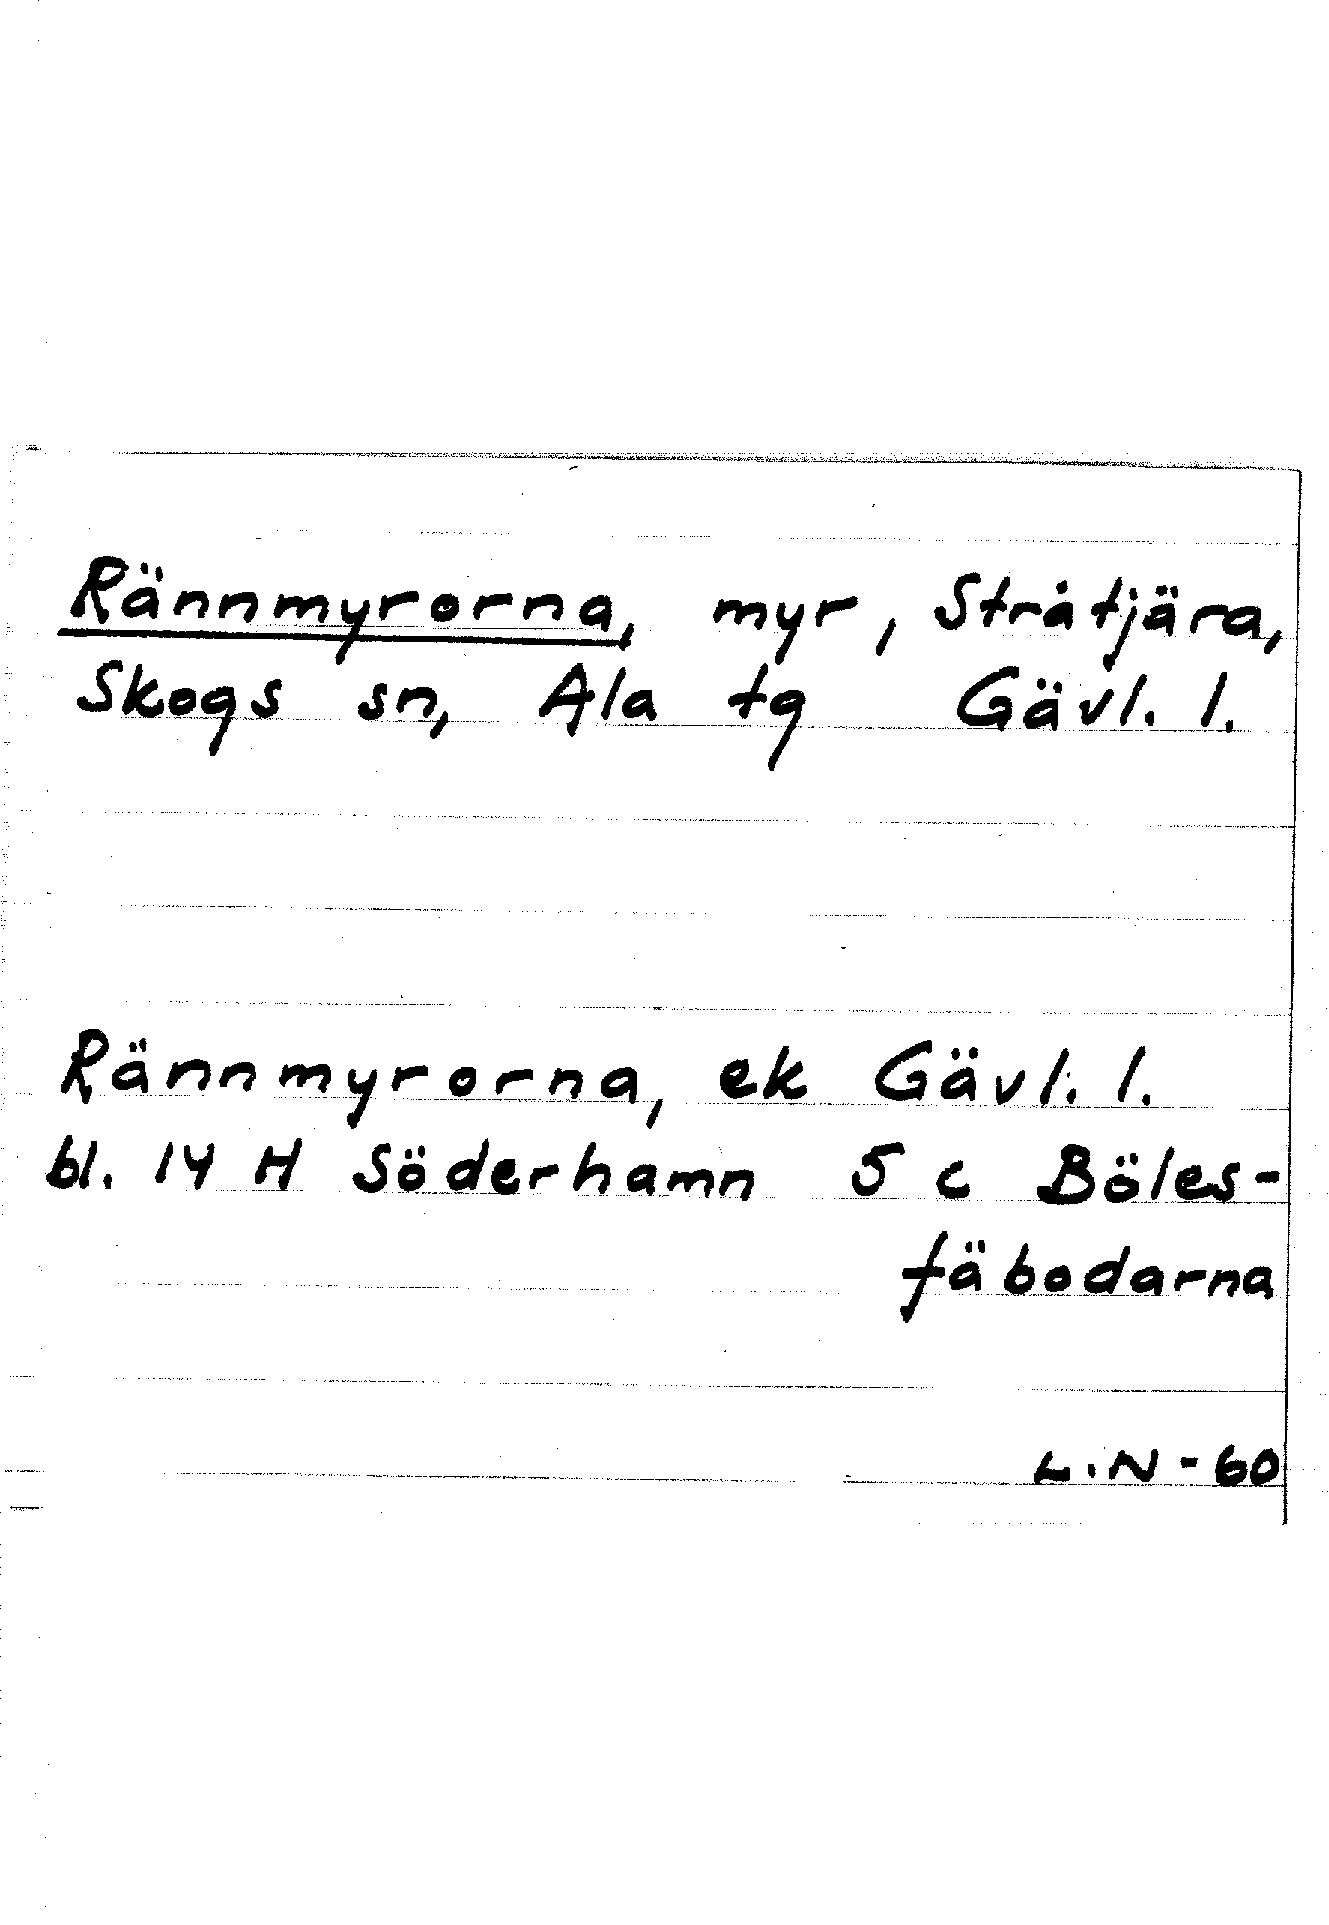 Rännmyrorna, myr, Stråtjära,
Skogs sn, Ala tg Gävl. l.
Rännmyrorna, ek Gävl. l.
bl. 14 H Söderhamn 5 c Böles-
fäbodarna
L.N - 60